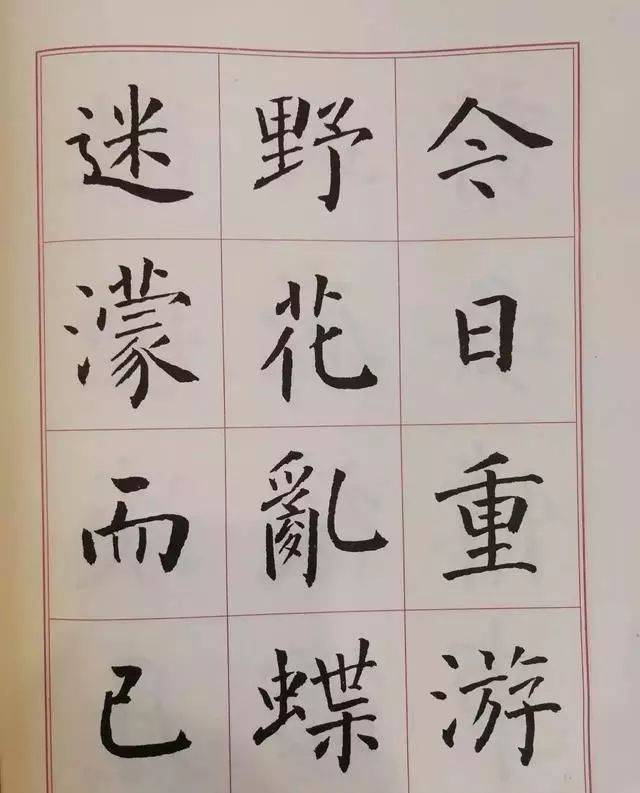 今日重游
野花亂蝶
迷濛而已